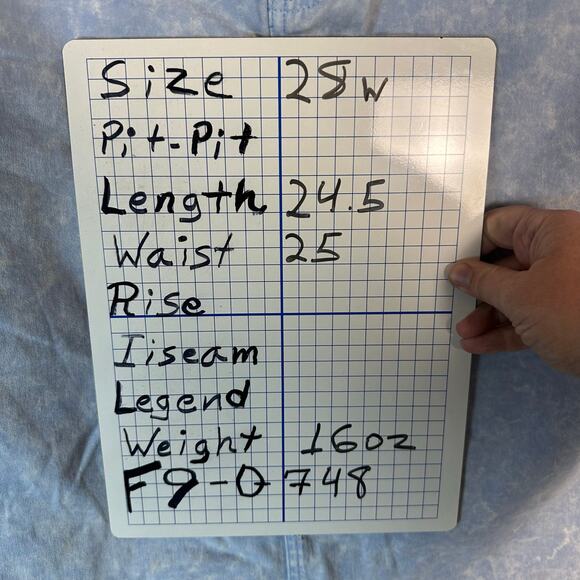 Size 28W
Pit-Pit
Length 24.5
Waist 25
Rise
Iiseam
Legend
Weight 16oz
F9-0748